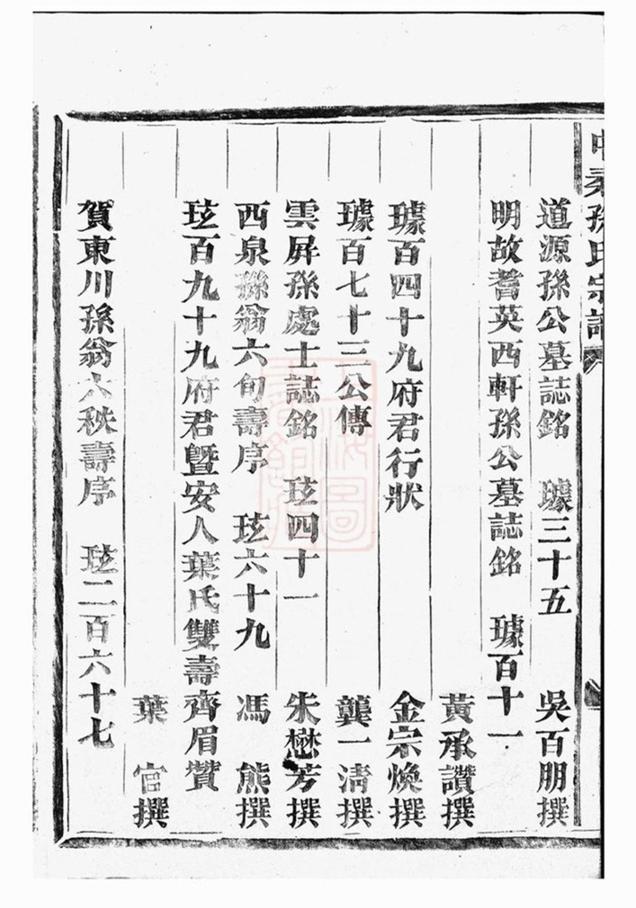 孫氏宗譜
道源孫公墓誌銘 璩三十五 吳百朋撰
明故耆英西軒孫公墓誌銘 璩百十一
黃承讚撰
璩百四十九府君行狀 金宗煥撰
璩百七十三公傳 龔一淸撰
雲屏孫處士誌銘 玹四十一 朱懋芳撰
西泉孫翁六旬壽序 玹六十九 馮熊撰
玹百九十九府君暨安人葉氏雙壽齊眉贊
葉官撰
賀東川孫翁六秩壽序 玹二百六十七